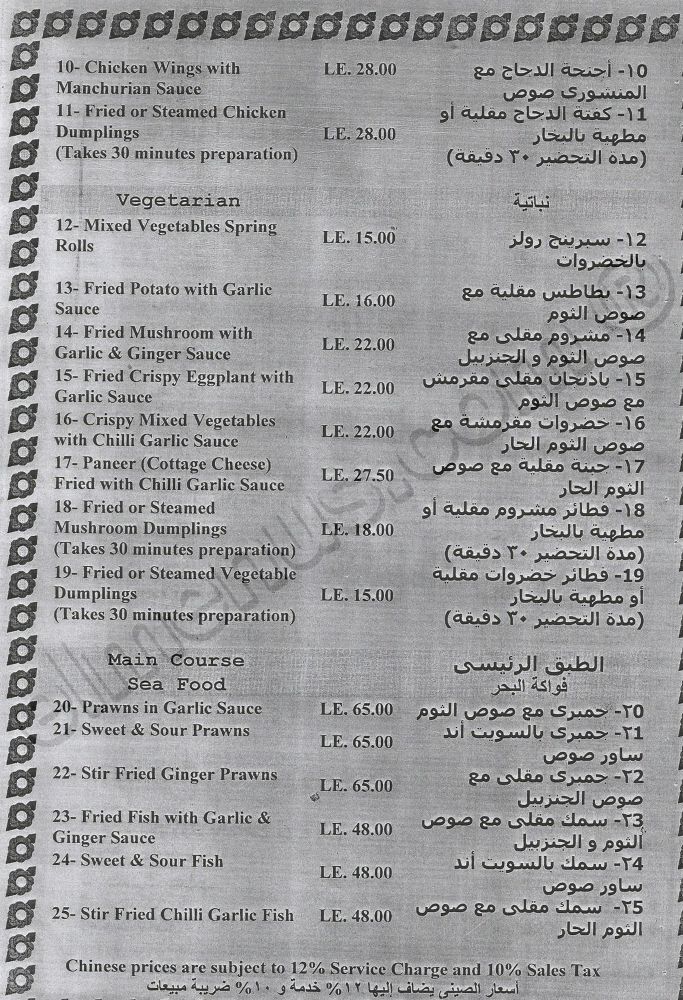 10- Chicken Wings with LE. 28.00 ١٠- أجنحة الدجاج مع
Manchurian Sauce المنشورى صوص
11- Fried or Steamed Chicken ١١- كفتة الدجاج مقلية أو
Dumplings LE. 28.00 مطهية بالبخار
(Takes 30 minutes preparation) (مدة التحضير ٣٠ دقيقة)
Vegetarian نباتية
12- Mixed Vegetables Spring LE. 15.00 ١٢- سبرينج رولز
Rolls بالخضروات
13- Fried Potato with Garlic LE. 16.00 ١٣- بطاطس مقلية مع
Sauce صوص الثوم
14- Fried Mushroom with LE. 22.00 ١٤- مشروم مقلى مع
Garlic & Ginger Sauce صوص الثوم و الجنزبيل
15- Fried Crispy Eggplant with LE. 22.00 ١٥- باذنجان مقلى مقرمش
Garlic Sauce مع صوص الثوم
16- Crispy Mixed Vegetables LE. 22.00 ١٦- خضروات مقرمشة مع
with Chilli Garlic Sauce صوص الثوم الحار
17- Paneer (Cottage Cheese) LE. 27.50 ١٧- جبنة مقلية مع صوص
Fried with Chilli Garlic Sauce الثوم الحار
18- Fried or Steamed ١٨- فطائر مشروم مقلية أو
Mushroom Dumplings LE. 18.00 مطهية بالبخار
(Takes 30 minutes preparation) (مدة التحضير ٣٠ دقيقة)
19- Fried or Steamed Vegetable ١٩- فطائر خضروات مقلية
Dumplings LE. 15.00 أو مطهية بالبخار
(Takes 30 minutes preparation) (مدة التحضير ٣٠ دقيقة)
Main Course الطبق الرئيسى
Sea Food فواكة البحر
20- Prawns in Garlic Sauce LE. 65.00 ٢٠- جمبرى مع صوص الثوم
21- Sweet & Sour Prawns LE. 65.00 ٢١- جمبرى بالسويت أند
ساور صوص
22- Stir Fried Ginger Prawns LE. 65.00 ٢٢- جمبرى مقلى مع
صوص الجنزبيل
23- Fried Fish with Garlic & LE. 48.00 ٢٣- سمك مقلى مع صوص
Ginger Sauce الثوم و الجنزبيل
24- Sweet & Sour Fish LE. 48.00 ٢٤- سمك بالسويت أند
ساور صوص
25- Stir Fried Chilli Garlic Fish LE. 48.00 ٢٥- سمك مقلى مع صوص
الثوم الحار
Chinese prices are subject to 12% Service Charge and 10% Sales Tax
أسعار الصينى يضاف إليها ١٢% خدمة و ١٠% ضريبة مبيعات
elmenus.com ©